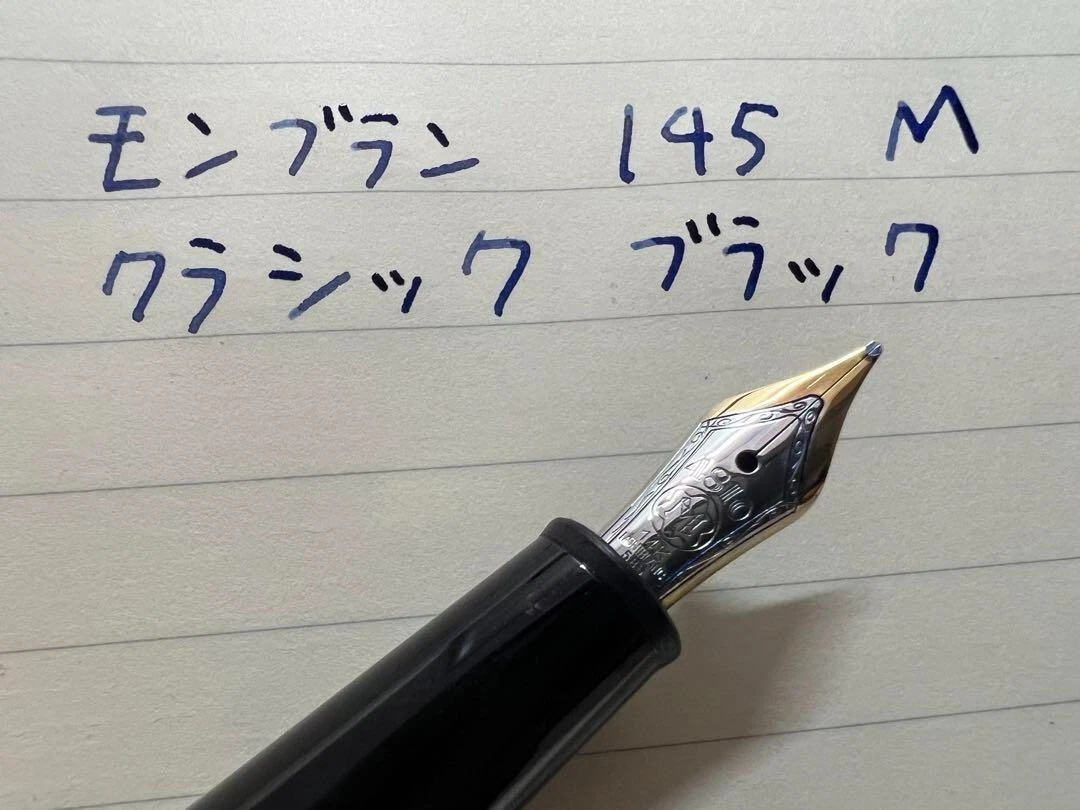 モンブラン 145 M
クラシック ブラック
4810
14K
MONTBLANC
585